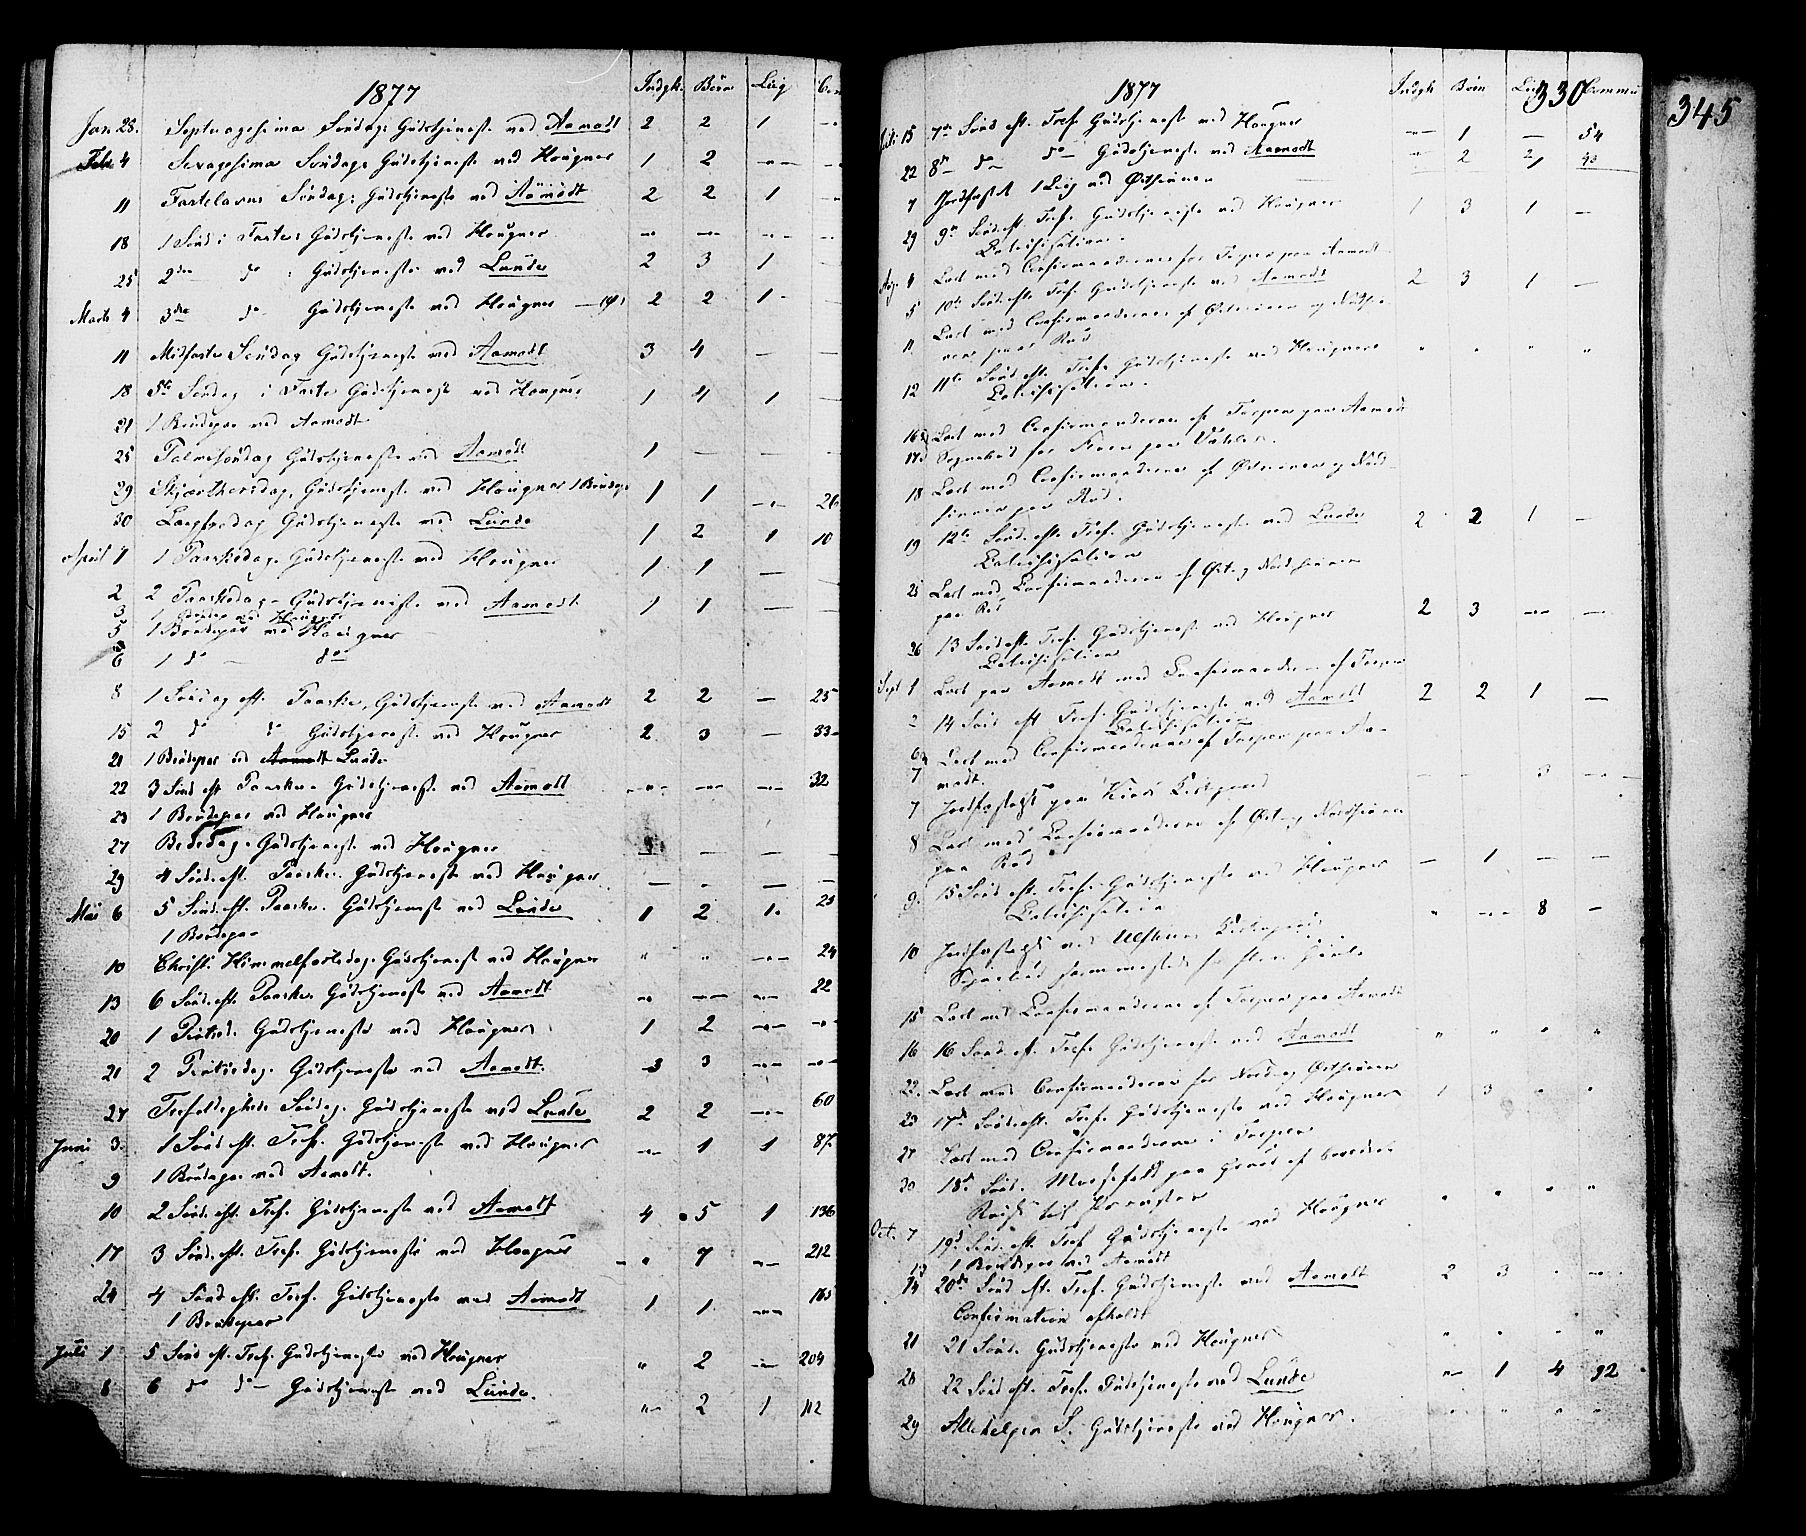 1877 Indgk. Børn Liig Com
Jan 28. Septuagesima Søndag: Gudstjeneste ved Aamodt 2 2 1 -
Feb 4 Sexagesima Søndag: Gudstjeneste ved Hougner 1 2 - -
11 Fastelavns Søndag: Gudstjeneste ved Aamodt 2 2 1 -
18 1 Sønd i Faste: Gudstjeneste ved Hougner - - - -
25 2den do : Gudstjeneste ved Lunde 2 3 1 -
Marts 4 3die do Gudstjeneste ved Hougner 2 2 1 -
11 Midfaste Søndag Gudstjeneste ved Aamodt 3 4 - -
18 5te Søndag i Faste Gudstjeneste ved Hougner 1 4 1 -
21 1 Brudepar ved Aamodt
25 Palmesøndag Gudstjeneste ved Aamodt 1 - - -
29 Skjærthorsdag, Gudstjeneste ved Hougner 1 Brudepar 1 1 - 26
30 Langfredag Gudstjeneste ved Lunde 1 2 1 10
April 1 1 Paaskedag. Gudstjeneste ved Hougner 1 1 - -
2 2 Paaskedag - Gudstjeneste ved Aamodt 1 1 - -
3 1 Brudepar ved Hougner
5 1 Brudepar ved Hougner
6 1 do - do
8 1 Søndag eft. Paaske, Gudstjeneste ved Aamodt 2 2 - 25
15 2 do do Gudstjeneste ved Hougner 2 3 - 33
21 1 Brudepar ved Aamodt Lunde
22 3 Sønd eft Paaske. Gudstjeneste ved Aamodt - - - 32
23 1 Brudepar ved Hougner
27 Bededag. Gudstjeneste ved Hougner - - -
29 4 Sønd. eft. Paaske. Gudstjeneste ved Hougner - - - -
Mai 6 5 Sønd. eft. Paaske. Gudstjeneste ved Lunde 1 2 1 25
1 Brudepar
10 Christi Himmelfartsdag. Gudstjeneste ved Hougner " " - 24
13 6 Sønd. eft. Paaske. Gudstjeneste ved Aamodt - - - 22
20 1 Pintsed. Gudstjeneste ved Hougner 1 2 - -
21 2 Pintsedag. Gudstjeneste ved Aamodt. 3 3 - -
27 Trefoldigheds Søndag. Gudstjeneste ved Lunde 2 2 - 60
Juni 3. 1 Sønd eft. Tref. Gudstjeneste ved Hougner - 1 1 87
9 1 Brudepar ved Aamodt.
10 2 Sønd. eft. Tref. Gudstjeneste ved Aamodt 4 5 1 136
17 3 Sønd. eft. Tref. Gudstjeneste ved Hougner - 7 - 212
24 4 Sønd eft. Tref. Gudstjeneste ved Aamodt 1 1 - 165
1 Brudepar
Juli 1 5 Sønd eft. Tref. Gudstjeneste ved Hougner " 2 - 204
8 6 do do - Gudstjeneste ved Lunde. " 2 1 112
1877 Indgk Børn Liig Commu
330
345
Juli 15 7de Sønd eft. Tref. Gudstjeneste ved Hougner - 1 - 54
22 8de do do - Gudstjeneste ved Aamodt - 2 2
Jordfæstet 1 Liig ved Østsinnen 1
29 9de Sønd. eft. Tref. Gudstjeneste ved Hougner 1 3 1 -
Catechisation.
Aug. 4 Læst med Confirmanderne for Torpen paa Aamodt
5 10de Sønd. eft. Tref. Gudstjeneste ved Aamodt 2 3 1 -
11 Læst med Confirmanderne af Østsinnen og Nordsinnen paa Rud
12 11te Sønd. eft. Tref. Gudstjeneste ved Hougner " " " "
Catechisation.
16 Læst med Confirmanderne af Torpen paa Aamodt
17
18 Læst med Confirmanderne af Østsinnen og Nordsinnen paa Rud.
19 12te Sønd. eft. Tref. Gudstjeneste ved Lunde 2 2 1 -
Catechisation
25 Læst med Confirmanderne af Øst og Nordsinnen
paa Rud
26 13 Sønd. eft. Tref. Gudstjeneste ved Hougner 2 3 - -
Catechisation
Sept 1 Læst paa Aamodt med Confirmanderne af Torpen
2 14 Sønd eft Tref. Gudstjeneste ved Aamodt 2 2 1 -
Catechisation
6 Læst med Confirmanderne af Torpen paa Aa-
7 modt.
7 Jordfæstet paa Kirkegaard - - 3 -
8 Læst med Confirmanderne af Øst og Nordsinnen
paa Rud
9. 15 Sønd eft. Tref. Gudstjeneste ved Hougner - 1 - -
Catechisation
10 Jordfæstet ved Ulsnes Kirkegaard " - 8 -
15 Læst med Confirmanderne af Torpen paa Aamodt
16 16 Sønd. eft. Tref. Gudstjeneste ved Aamodt " " " "
22. Læst med Confirmanderne for Nord og Østsinnen
23 17de Sønd. eft. Tref. Gudstjeneste ved Hougner 1 3 " "
27 Læst med Confirmanderne i Torpen
30 18de Sønd. Messefald paa Grund af
Reise til
Oct. 7 19de Sønd. eft. Tref Gudstjeneste ved Hougner " " " "
13 1 Brudepar ved Aamodt
14 20de Sønd eft. Tref. Gudstjeneste ved Aamodt 2 3 - -
Confirmation afholdt
21 21 Sønd. Gudstjeneste ved Hougner " " " "
28 22 Sønd eft. Tref. Gudstjeneste ved Lunde - 1 4 92
29 Allehelgen S. Gudstjeneste ved Hougner. " " " "